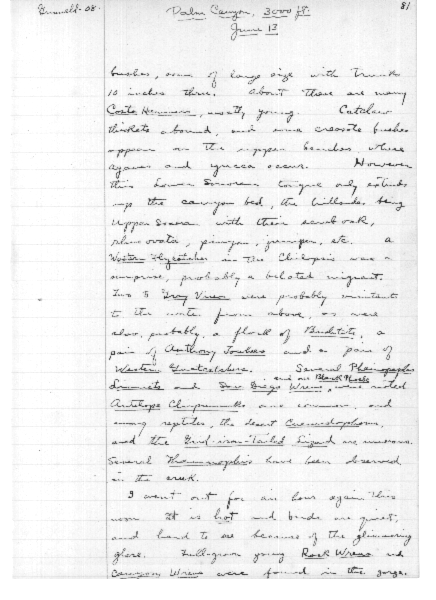 Grinnell-08.
Palm Canyon, 3000 ft.
81
June 13
bushes, some of large size with trunks
10 inches thru. About these are many
Costa Hummers, mostly young. Catclaw
thickets abound, and some creosote bushes
appear on the upper benches where
agaves and yucca occur. However
this Lower Sonoran tongue only extends
up the canyon bed, the hillsides being
Upper Sonoran with their scrub oak,
rhus ovata, pinyon, juniper, etc. A
Western Flycatcher in the Chilopsis was a
surprise, probably a belated migrant.
Two Gray Vireos were probably visitant
to the water from above, as were
also, probably, a flock of Bushtits, a
pair of Anthony Towhees and a pair of
Western Gnatcatchers. Several Phainopeplas
and one Black Phoebe
Linnets and San Diego Wrens, were noted
Antelope Chipmunks are common, and
among reptiles, the desert Cnemidophorus,
and the Grid-iron-tailed lizard are numerous.
Several Thamnophis have been observed
in the creek.
I went out for an hour again this
noon. It is hot and birds are quiet,
and hard to see because of the glimmering
glare. Fullgrown young Rock Wrens and
Canyon Wrens were found in the gorge.